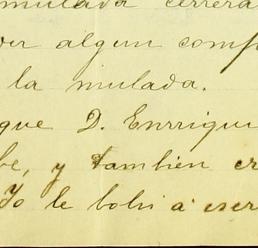 mulada cerrera
ver algun comp
la mulada.
que D. Enrriqu
be, y tambien cr
Yo le bolvi á escr